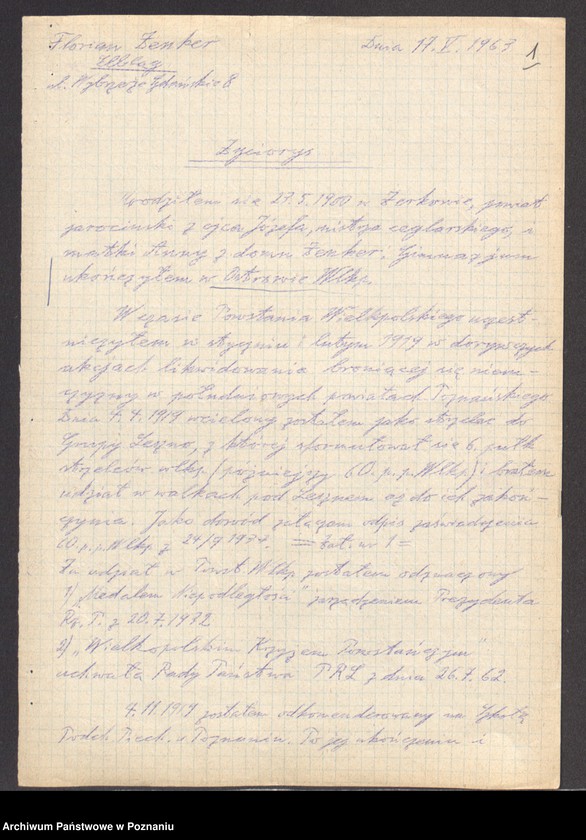 Florian Zenker
Dnia 17. V. 1963
1
Elbląg
ul. Wybrzeże Gdańskie 8
Życiorys
Urodziłem się 27.5.1900 w Żerkowie, powiat
jarociński z ojca Józefa, mistrza ceglarskiego, i
matki Anny z domu Zenker. Gimnazjum
ukończyłem w Ostrowie Wlkp.
W czasie Powstania Wielkopolskiego uczest-
niczyłem w styczniu i lutym 1919 w dorywczych
akcjach likwidowania broniącej się niem-
czyzny w południowych powiatach Poznańskiego
Dnia 4.4.1919 wcielony zostałem jako strzelec do
Grupy Leszno, z której sformułował się 6. pułk
strzelców wlkp. (późniejszy 60. p.p. Wlkp.) i brałem
udział w walkach pod Lesznem aż do ich zakoń-
czynia. Jako dowód załączam odpis zaświadczenia
60. p.p. Wlkp. z = Zał. nr 1 =
Za udział w Powst. Wlkp. zostałem odznaczony
1) "Medalem Niepodległości" zarządzeniem Prezydenta
Rz. P. z 20.7.1932
2) "Wielkopolskim Krzyżem Powstańczym"
uchwałą Rady Państwa PRL z dnia 26.7.62.
4.11.1919 zostałem odkomenderowany na Szkołę
Podch. Piech. w Poznaniu. Po jej ukończeniu i
Archiwum Państwowe w Poznaniu